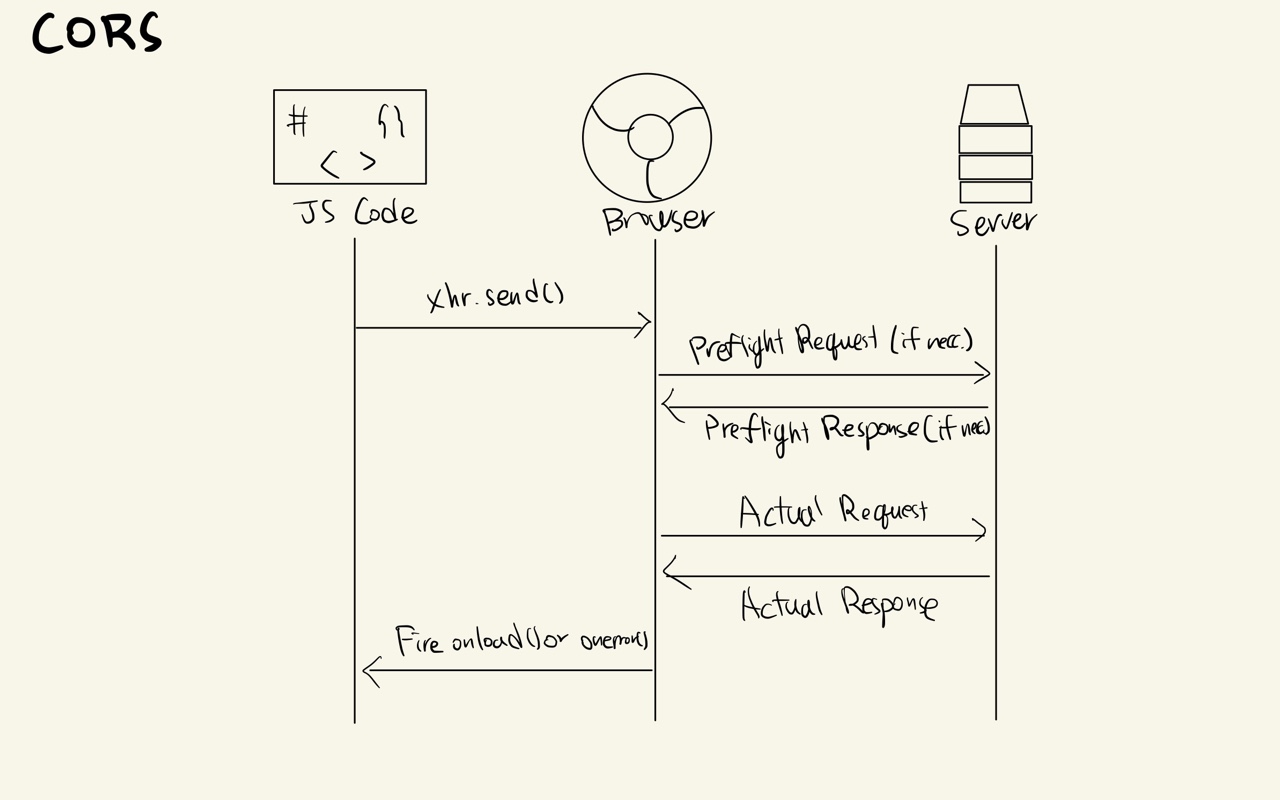 CORS
# {}
< >
JS Code
Browser
Server
xhr.send()
Preflight Request (if necc.)
Preflight Response (if nec)
Actual Request
Actual Response
Fire onload() or onerror()